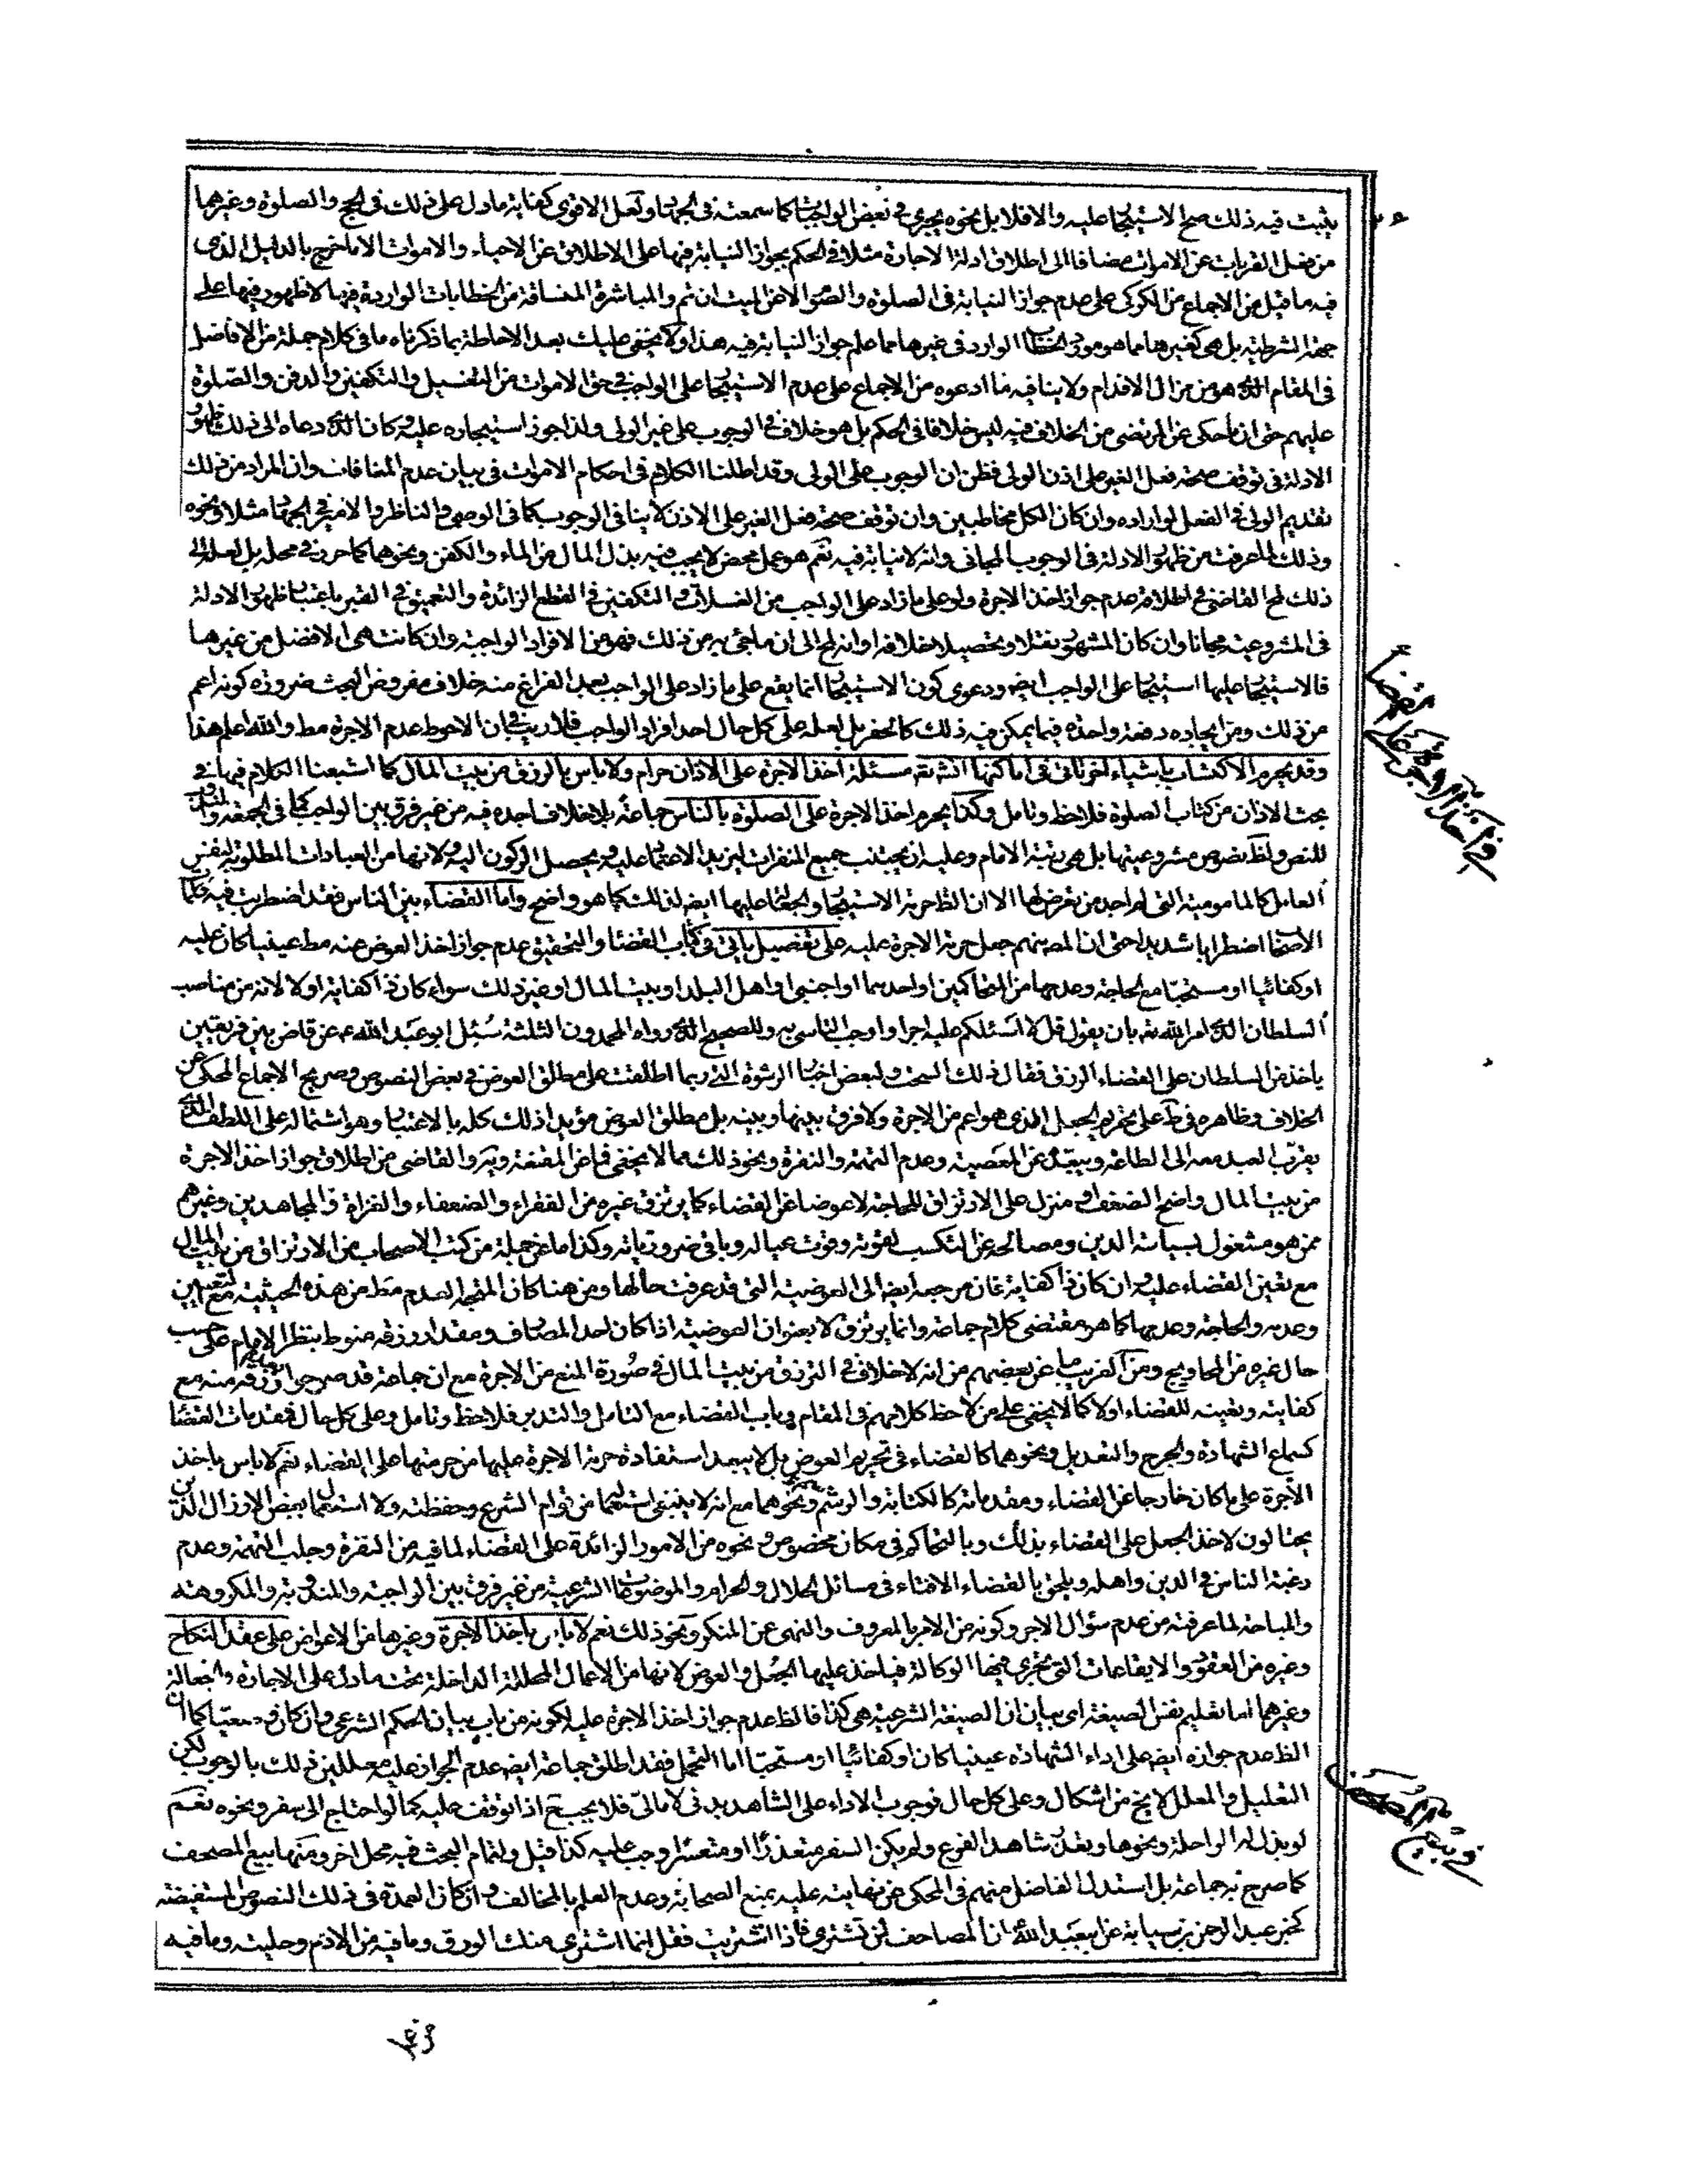 يثبت فيه ذلك صح الاستيجار عليه والا فلا بل نحوه يجرى فى بعض الواجبات كما سمعته فى الجهاد ولعل الاقوى كفاية ما دل على ذلك فى الحج والصلوة وغيرهما
من فعل القربات عن الاموات مضافا الى اطلاق ادلة الاجارة مثلا فى الحكم بجواز النيابة فيها على الاطلاق عن الاحياء والاموات الا ما خرج بالدليل الذى
فيه ما قيل من الاجماع عن الكركى على عدم جواز النيابة فى الصلوة والصوم الا عن الميت ان تم والمباشرة المنساقة من الخطابات الواردة فيها لا ظهور فيها على
جهة الشرطية بل هى كغيرها مما هو مورد الخطاب الوارد فى غيرها مما علم جواز النيابة فيه هذا ولا يخفى عليك بعد الاحاطة بما ذكرناه ما فى كلام جملة من الافاضل
فى المقام الذى هو من مزال الاقدام ولا ينافيه ما ادعوه من الاجماع على عدم الاستيجار على الواجب فى حق الاموات من التغسيل والتكفين والدفن والصلوة
عليهم حتى ان ما حكى عن المرتضى من الخلاف فيه ليس خلافا فى الحكم بل هو خلاف فى الوجوب على غير الولى ولذا جوز استيجاره عليه وكان الذى دعاه الى ذلك ظهور
الادلة فى توقف صحة فعل الغير على اذن الولى فظن ان الوجوب على الولى وقد اطلنا الكلام فى احكام الاموات فى بيان عدم المنافات وان المراد من ذلك
تقديم الولى فى الفعل لو اراده وان كان الكل مخاطبين وان توقف صحة فعل الغير على الاذن لا ينافى الوجوب كما فى الوصى والناظر والامير فى الجهاد مثلا ونحوه
وذلك لما عرفت من ظهور الادلة فى الوجوب المجانى وانه لا نيابة فيه نعم هو عمل محض لا يجب فيه بذل المال من الماء والكفن ونحوهما كما حرر فى محله بل لعله الى
ذلك لمح القاضى فى اطلاقه عدم جواز اخذ الاجرة ولو على ما زاد على الواجب من الغسلات والتكفين فى القطع الزائدة والتعميق فى القبر باعتبار ظهور الادلة
فى المشروعية مجانا وان كان المشهور نقلا وتحصيلا خلافه او انه لمح الى ان ما جئ به من ذلك فهو من الافراد الواجبة وان كانت هى الافضل من غيرها
فالاستيجار عليها استيجار على الواجب ايضه ودعوى كون الاستيجار انما يقع على ما زاد على الواجب بعد الفراغ منه خلاف مفروض البحث ضرورة كونه اعم
من ذلك ومن ايجاده دفعة واحدة فيما يمكن فيه ذلك كالحفر بل لعله على كل حال احد افراد الواجب فلا ريب فى ان الاحوط عدم الاجرة مط والله اعلم هذا
وقد يحرم الاكتساب باشياء اخر تاتى فى اماكنها انشه تعه مسئلة اخذ الاجرة على الاذان حرام ولا باس بالرزق من بيت المال كما اشبعنا الكلام فيها فى
بحث الاذان من كتاب الصلوة فلاحظ وتامل وكذا يحرم اخذ الاجرة على الصلوة بالناس جماعة بلا خلاف اجده فيه من غير فرق بين الواجب كما فى الجمعة والمندوب
للنص ولظ نصوص مشروعيتها بل هى رتبة الامام وعليه ان يجتنب جميع المنفرات ليزيد الاعتماد عليه ويحصل الركون اليه ولانها من العبادات المطلوبة لنفس
العامل كالمامومية التى لم اجد من تعرض لها الا ان الظ حرمة الاستيجار والجعالة عليها ايضه لذلك كما هو واضح واما القضاء بين الناس فقد اضطرب فيه كلمات
الاصحاب اضطرابا شديدا حتى ان المصه منهم جعل حرمة الاجرة عليه على تفصيل ياتى فى كتاب القضاء والتحقيق عدم جواز اخذ العوض عنه مط عينيا كان عليه
او كفائيا او مستحبا مع الحاجة وعدمها من المتحاكمين او احدهما او اجنبى او اهل البلد او بيت المال او غير ذلك سواء كان ذا كفاية او لا لانه من مناصب
السلطان الذى امر الله نبيه بان يقول قل لا اسئلكم عليه اجرا واوجب التاسى به وللصحيح الذى رواه المحمدون الثلثة سئل ابو عبد الله ع عن قاض بين فريقين
ياخذ من السلطان على القضاء الرزق فقال ذلك السحت ولبعض اخبار الرشوة التى ربما اطلقت على مطلق العوض فى بعض النصوص وصريح الاجماع المحكى عن
الخلاف وظاهره فى ط على تحريم الجعل الذى هو اعم من الاجرة ولا فرق بينها وبينه بل مطلق العوض مؤيدا ذلك كله بالاعتبار وهو اشتماله على اللطف الذى
يقرب العبد معه الى الطاعة ويبعد عن المعصية وعدم التهمة والنفرة ونحو ذلك مما لا يخفى فما عن المقنعة ويه والقاضى من اطلاق جواز اخذ الاجرة
من بيت المال واضح الضعف او منزل على الارتزاق للحاجة لا عوضا عن القضاء كما يرتزق غيره من الفقراء والضعفاء والغزاة والمجاهدين وغيرهم
ممن هو مشغول بسياسة الدين ومصالحه عن التكسب لقوته وقوت عياله وباقى ضرورياته وكذا ما عن جملة من كتب الاصحاب من الارتزاق من بيت المال
مع تعين القضاء عليه وان كان ذا كفاية فان مرجعه ايضه الى العوضية التى قد عرفت حالها ومن هنا كان المتجه العدم مط من هذه الحيثية مع التعيين
وعدمه والحاجة وعدمها كما هو مقتضى كلام جماعة وانما يرتزق لا بعنوان العوضية اذا كان احد المصارف ومقدار رزقه منوط بنظر الامام على حسب
حال غيره من المحاويج ومن الغريب ما عن بعضهم من انه لا خلاف فى الترزق من بيت المال فى صورة المنع من الاجرة مع ان جماعة قد صرحوا بعدم رزقه منه مع
كفايته وتعينه للقضاء اولا كما لا يخفى على من لاحظ كلامهم فى المقام وباب القضاء مع التامل والتدبر فلاحظ وتامل وعلى كل حال فمقدمات القضاء
كسماع الشهادة والجرح والتعديل ونحوهما كالقضاء فى تحريم العوض بل لا يبعد استفادة حرمة الاجرة عليها من حرمتها على القضاء نعم لا باس باخذ
الاجرة على ما كان خارجا عن القضاء ومقدماته كالكتابة والرسم ونحوهما مع انه لا ينبغى استعمالهما من قوام الشرع وحفظته ولا استعمال بعض الارذال الذين
يحتالون لاخذ الجعل على القضاء بذلك وبالتحاكم فى مكان مخصوص ونحوه من الامور الزائدة على القضاء لما فيه من النفرة وجلب التهمة وعدم
رغبة الناس فى الدين واهله ويلحق بالقضاء الافتاء فى مسائل الحلال والحرام والموضوعات الشرعية من غير فرق بين الواجبة والمندوبة والمكروهة
والمباحة لما عرفته من عدم سؤال الاجر وكونه من الامر بالمعروف والنهى عن المنكر ونحو ذلك نعم لا باس باخذ الاجرة وغيرها من الاعواض على عقد النكاح
وغيره من العقود والايقاعات التى تجرى فيها الوكالة فياخذ عليها الجعل والعوض لانها من الاعمال المحللة الداخلة تحت ما دل على الاجارة والجعالة
وغيرهما اما تعليم نفس الصيغة اى بيان ان الصيغة الشرعية هى كذا فالظ عدم جواز اخذ الاجرة عليه لكونه من باب بيان الحكم الشرعى وان كان وضعيا كما ان
الظ عدم جوازه ايضه على اداء الشهادة عينيا كان او كفائيا او مستحبا اما التحمل فقد اطلق جماعة ايضه عدم الجواز عليه معللين ذلك بالوجوب لكن
التعليل والمعلل لا يخ من اشكال وعلى كل حال فوجوب الاداء على الشاهد بدنى لا مالى فلا يجب مع اذا توقف عليه كما لو احتاج الى سفر ونحوه نعم
لو بذل له الراحلة ونحوها وتعذر شاهد الفرع ولم يكن السفر متعذرا او متعسرا وجب عليه كذا قيل ولتمام البحث فيه محل اخر ومنها بيع المصحف
كما صرح به جماعة بل استدل الفاضل منهم فى المحكى عن نهايته عليه بمنع الصحابة وعدم العلم بالمخالف وان كان العمدة فى ذلك النصوص المستفيضة
كخبر عبد الرحمن بن سيابة عن ابيعبد الله ان المصاحف لن تشترى فاذا اشتريت فقل انما اشترى منك الورق وما فيه من الادم وحليته وما فيه
فى بيع المصحف